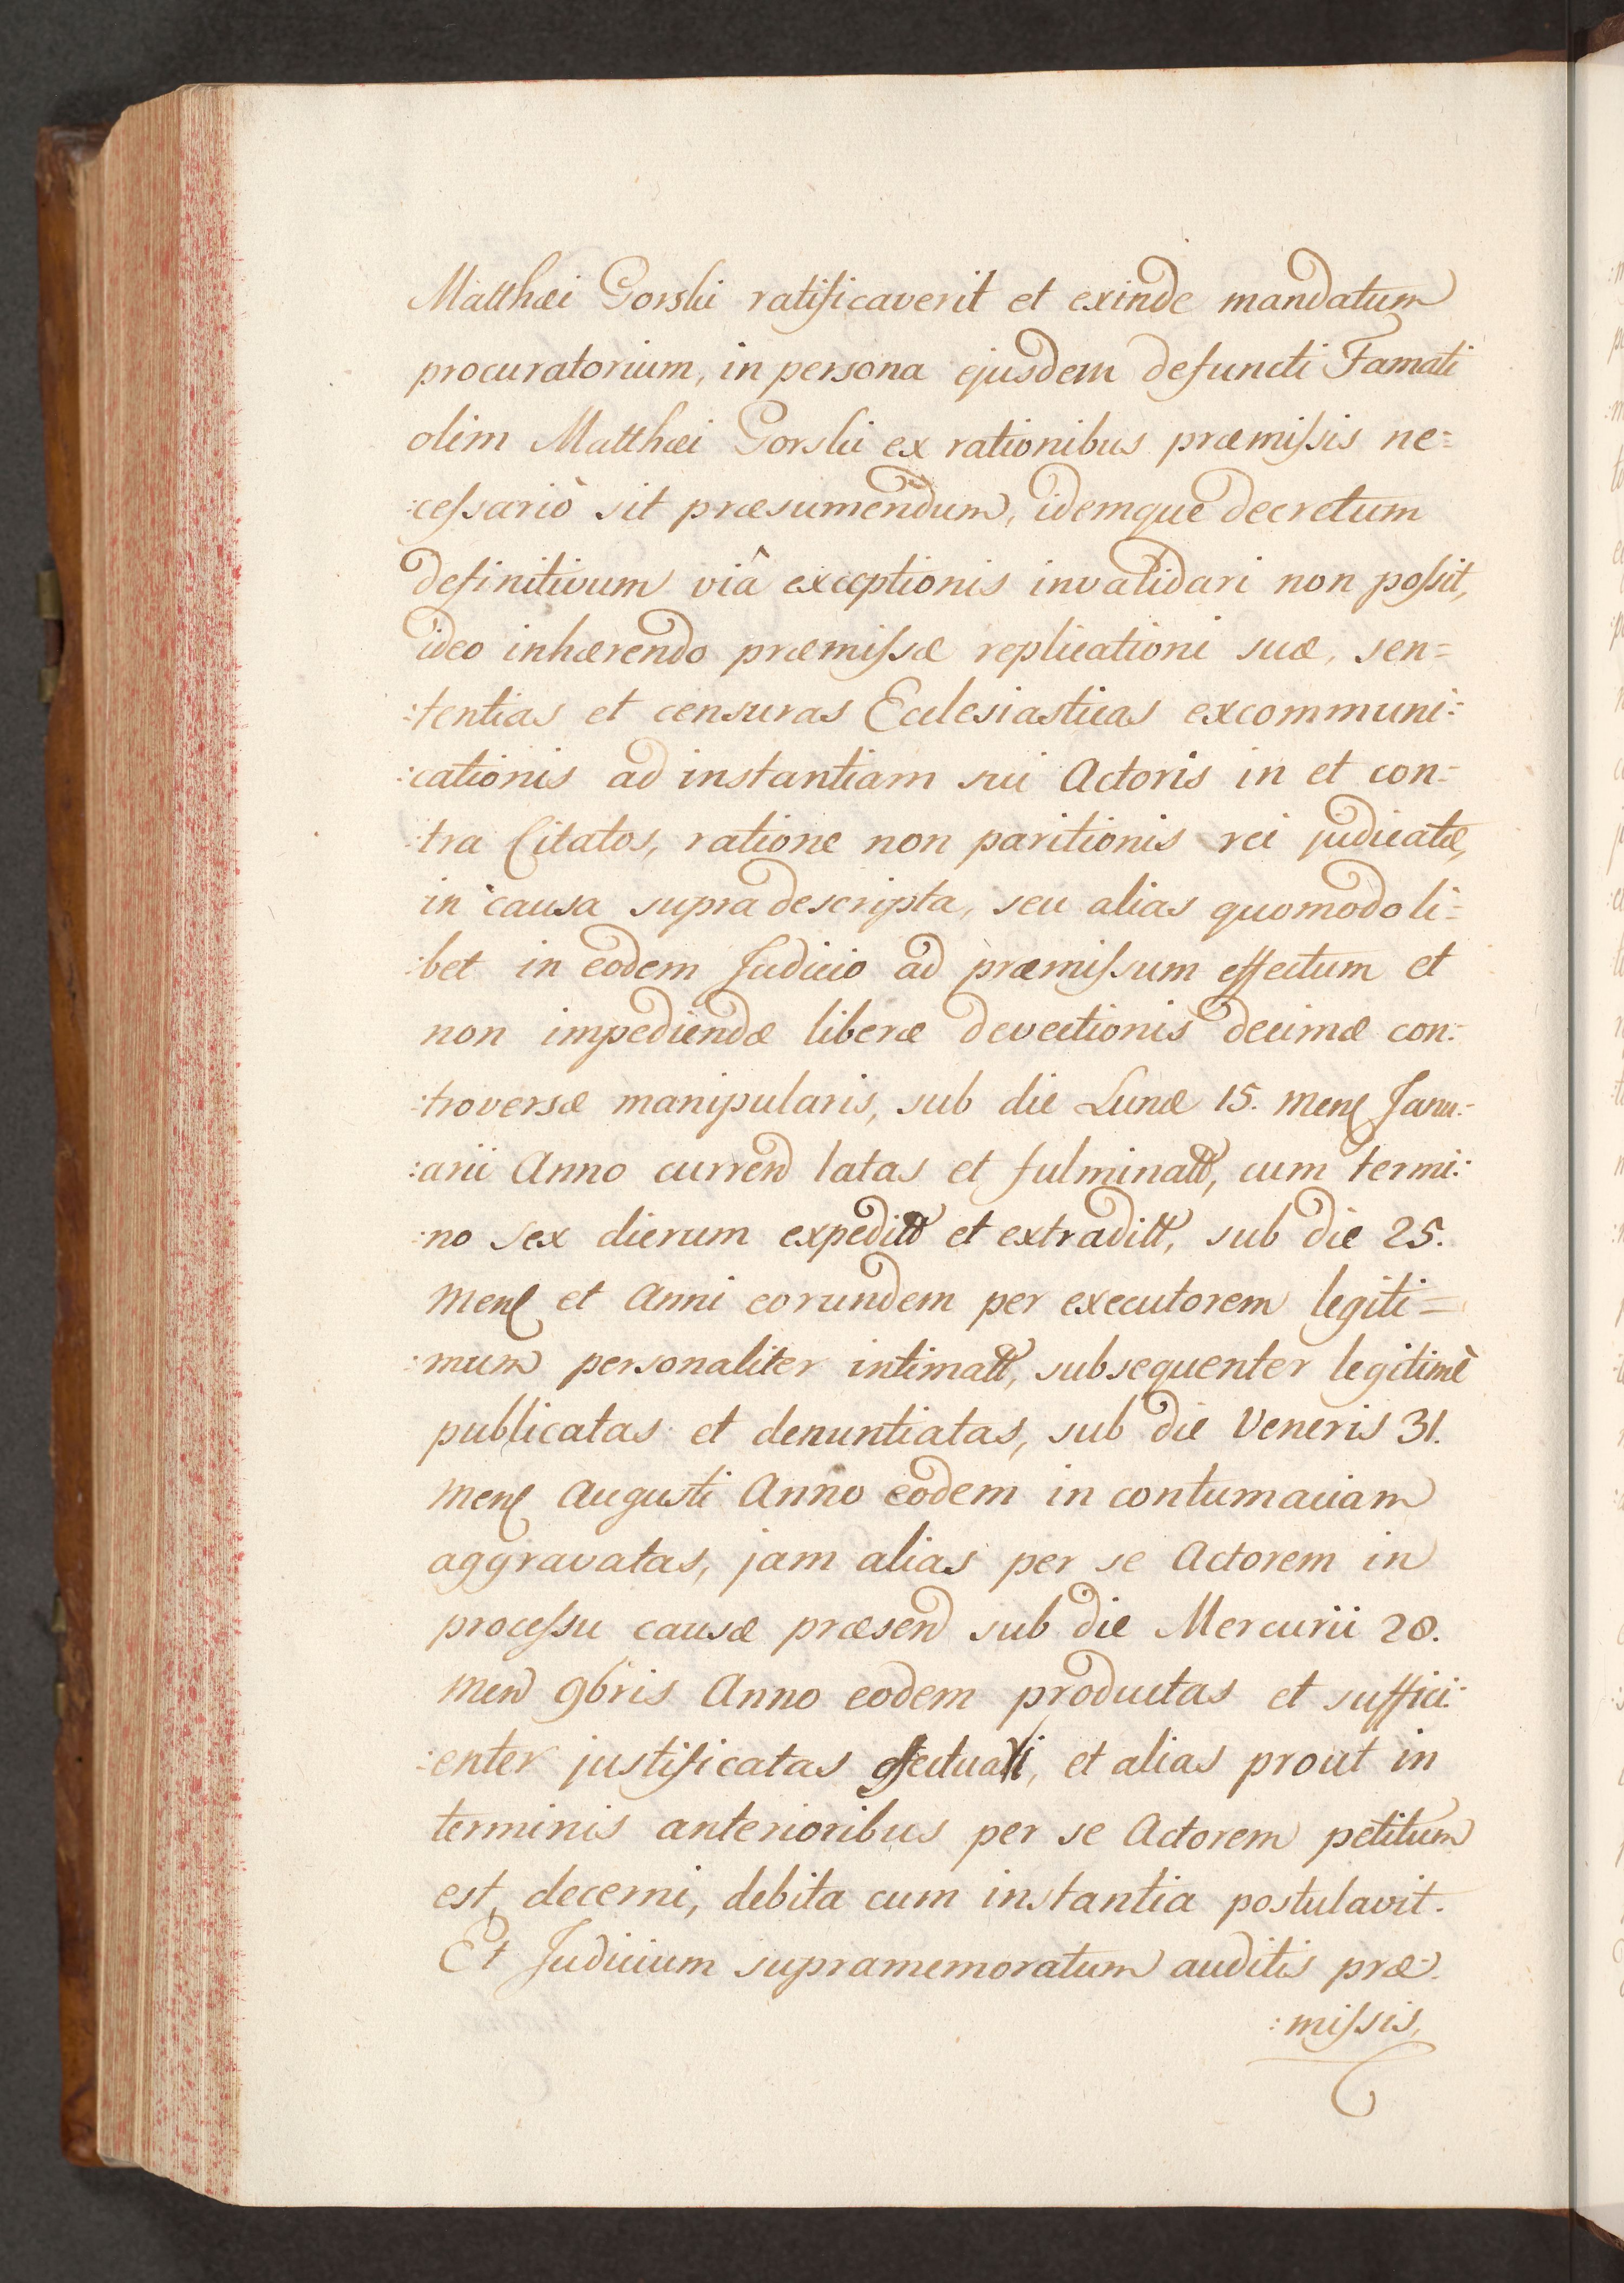 Matthæi Gorski ratificaverit et exinde mandatum
procuratorium, in persona ejusdem defuncti Famati
olim Matthæi Gorski ex rationibus præmiſsis ne=
:ceſsariò sit præsumendum, idemque decretum
definitivum viâ exceptionis invalidari non poſsit,
ideo inhærendo præmiſsæ replicationi suæ, sen=
:tentias et censuras Ecclesiasticas excommuni:
:cationis ad instantiam sui Actoris in et con=
:tra Citatos, ratione non paritionis rei judicatæ,
in causa supra descripta, seu alias quomodoli=
:bet in eodem Judicio ad præmiſsum effectum et
non impediendæ liberæ devectionis decimæ con:
:troversæ manipularis, sub die Lunæ 15. Menſ Janu:
:arii Anno curren latas et fulminatt, cum termi:
:no sex dierum expeditt et extraditt, sub die 25.
Menſ et Anni eorundem per executorem legiti=
:mum personaliter intimatt, subsequenter legitimè
publicatas et denuntiatas, sub die Veneris 31.
Menſ Augusti Anno eodem in contumaciam
aggravatas, jam alias per se Actorem in
proceſsu causæ præsen sub die Mercurii 28.
Men 9bris Anno eodem productas et suffici:
:enter justificatas effectuari, et alias prout in
terminis anterioribus per se Actorem petitum
est, decerni, debita cum instantia postulavit.
Et Judicium supramemoratum auditis præ:
:miſsis,